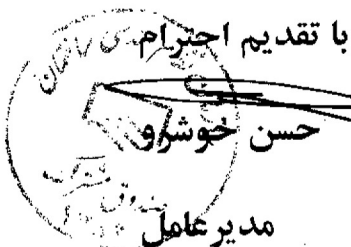 با تقدیم احترام
حسن خوشرو
مدیر عامل